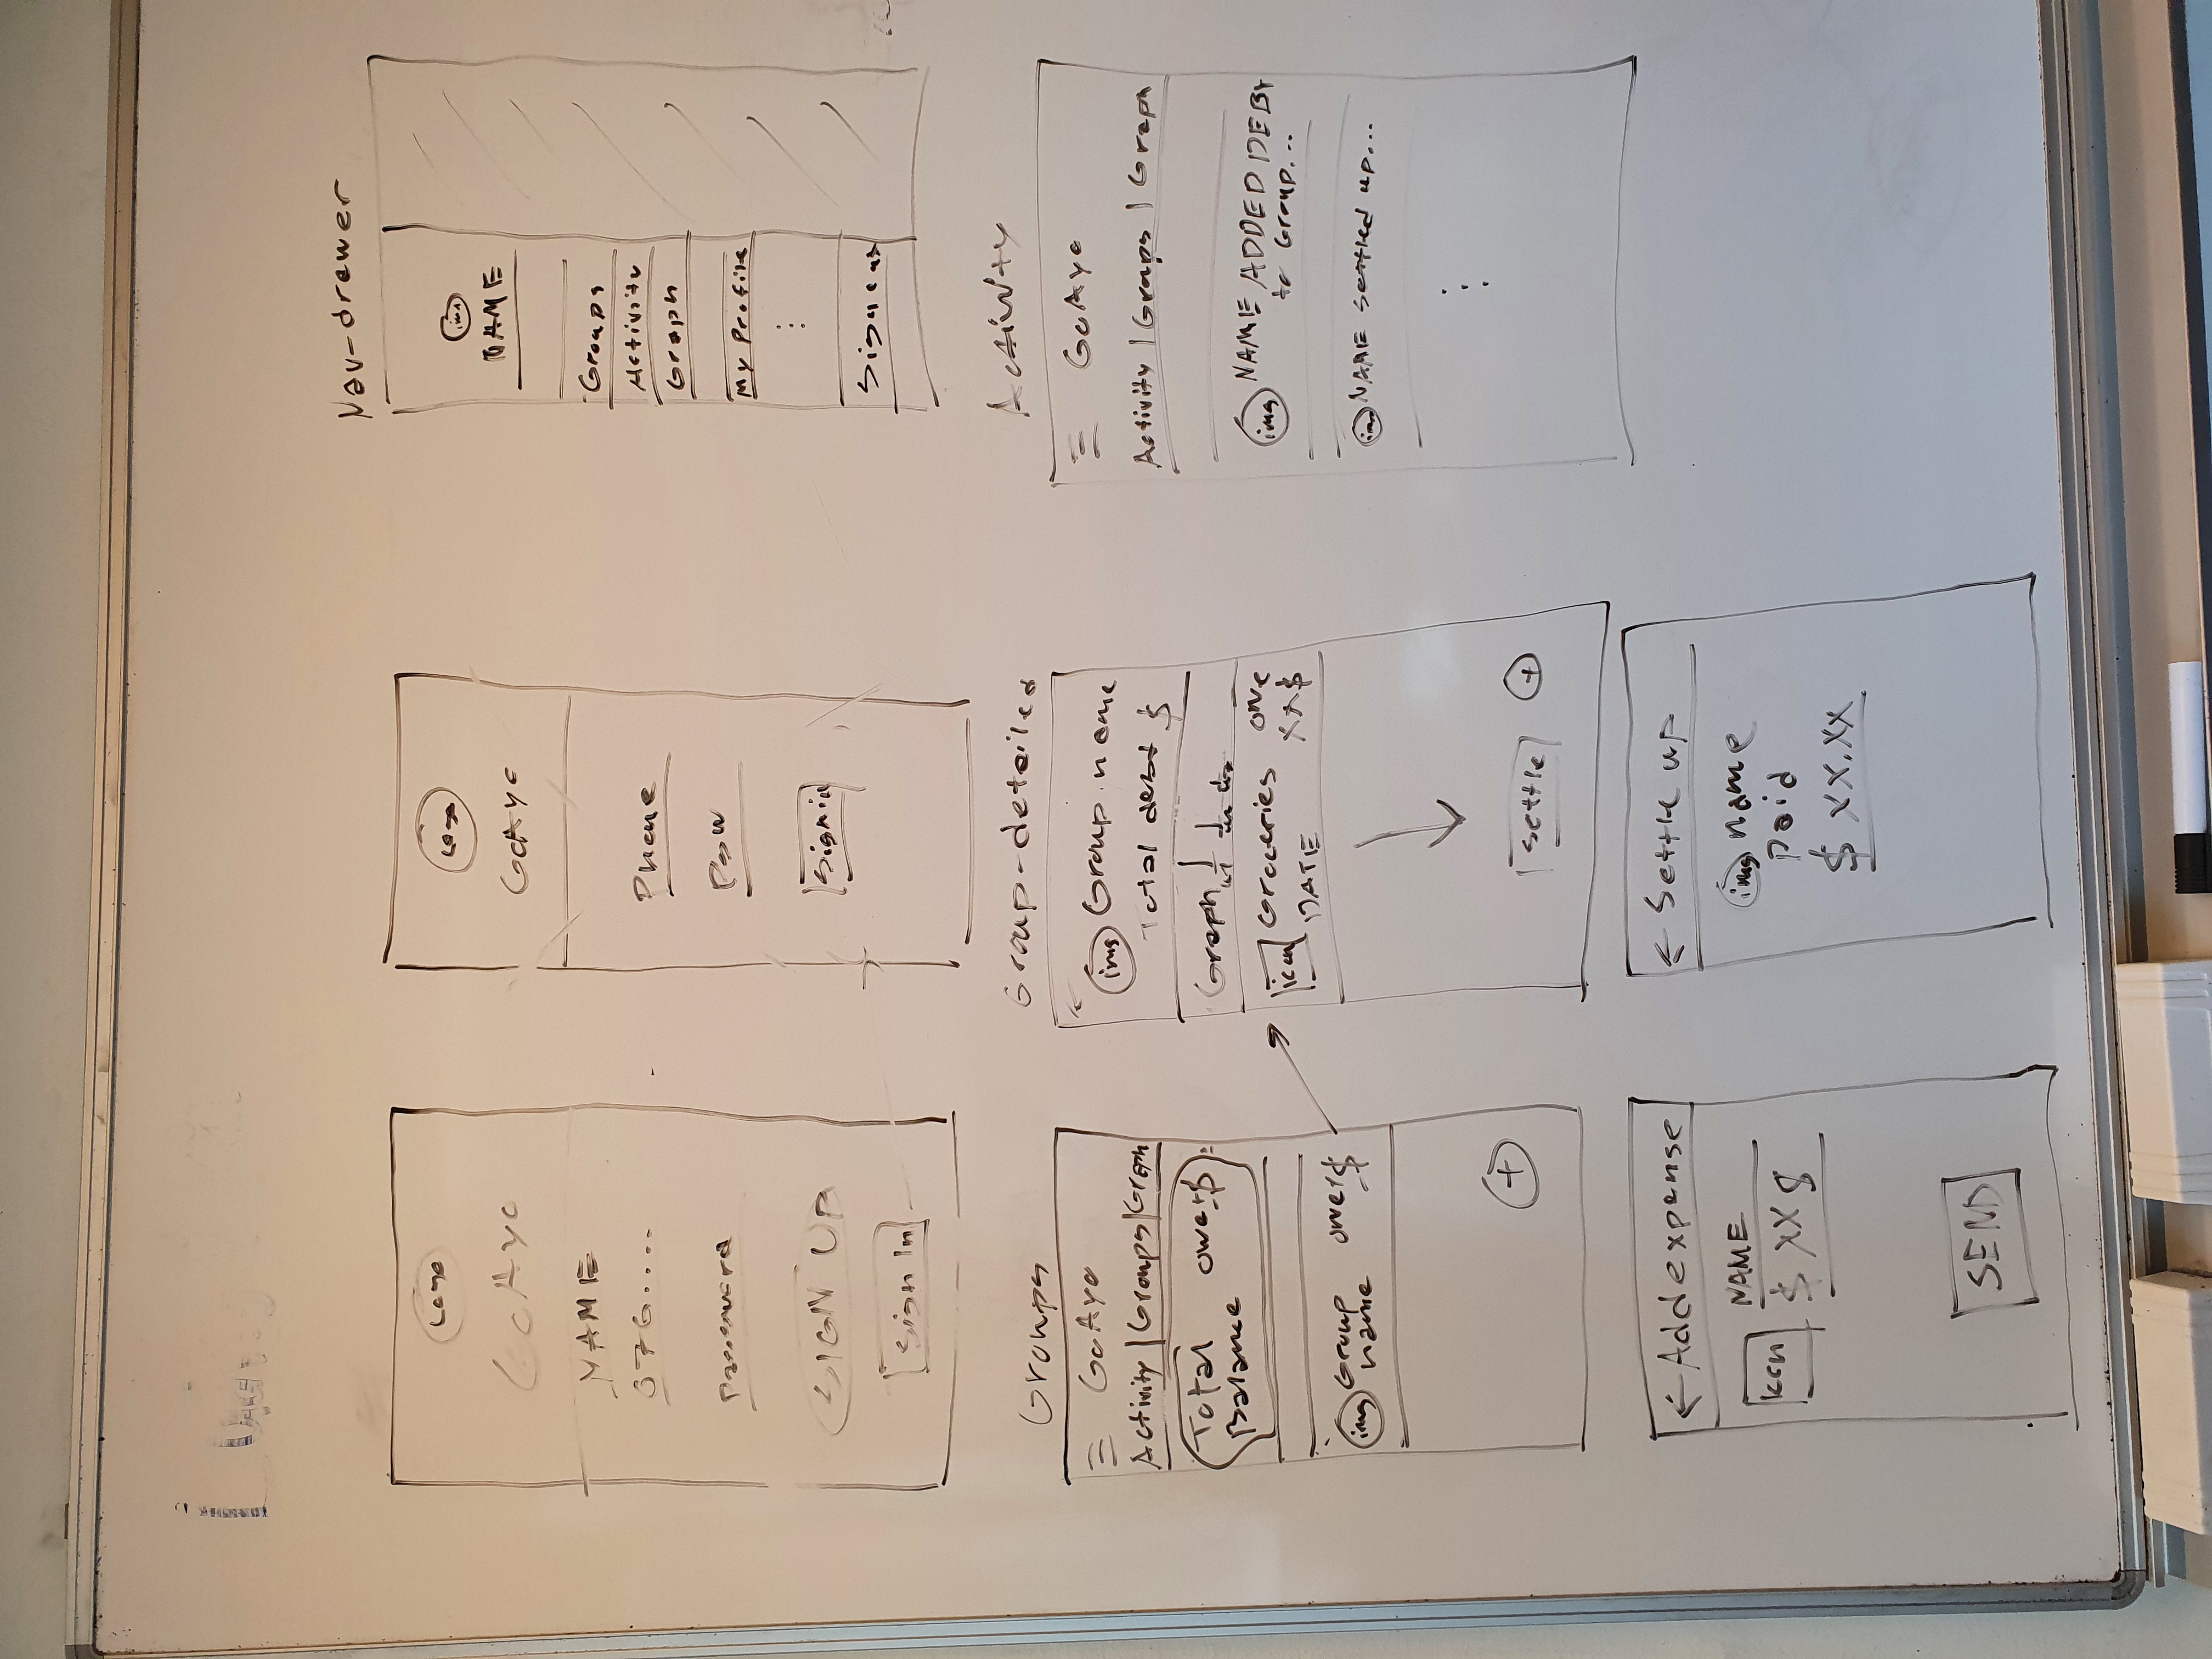 Logo
GoAyo
NAME
076....
Password
SIGN UP
Sign In
Logo
GoAyo
Phone
Psw
Signin
Nav-drawer
img
NAME
Groups
Activity
Graph
My Profile
⋮
Signout
Groups
☰ GoAyo
Activity | Groups | Graph
Total owe±$
Balance
img Group owe±$
name
+
Group-detailed
← img Group name
Total debt $
Graph
icon Groceries owe
DATE xx$
Settle +
Activity
☰ GoAyo
Activity | Groups | Graph
img NAME ADDED DEBT
to Group...
img NAME settled up...
⋮
← Add expense
icon NAME
$ XX $
SEND
← Settle up
img name
paid
$ XX.XX